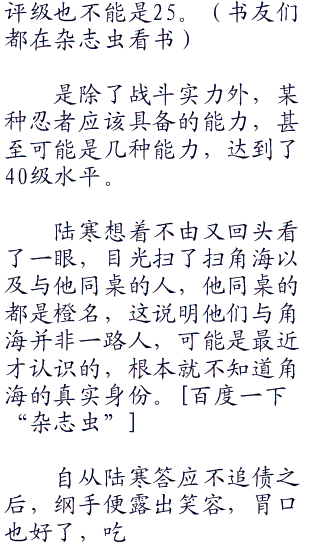 评级也不能是25。（书友们
都在杂志虫看书）
是除了战斗实力外，某
种忍者应该具备的能力，甚
至可能是几种能力，达到了
40级水平。
陆寒想着不由又回头看
了一眼，目光扫了扫角海以
及与他同桌的人，他同桌的
都是橙名，这说明他们与角
海并非一路人，可能是最近
才认识的，根本就不知道角
海的真实身份。[百度一下
“杂志虫”]
自从陆寒答应不追债之
后，纲手便露出笑容，胃口
也好了，吃